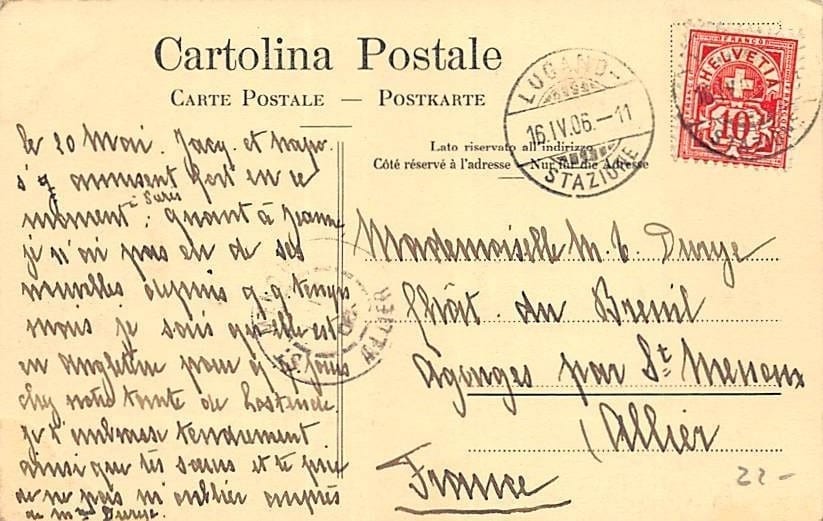 Cartolina Postale
CARTE POSTALE — POSTKARTE
Lato riservato all'indirizzo
Côté réservé à l'adresse — Nur für die Adresse
LUGANO-
16.IV.06.-11
STAZIONE
FRANCO
HELVETIA
10
le 20 Mai. Jacq. et
s'y amusent fort en ce
à Suris
moment; quant à Jeanne
je n'ai pas eu de ses
nouvelles depuis q.q. temps
mais je sais qu'elle est
en Angleterre pour q.q. jours
chez notre tante de
je t'embrasse tendrement
ainsi que tes sœurs et te prie
de ne pas m'oublier auprès
de Mme Durye.
Mademoiselle M. T. Durye
Chât. du Breuil
Agonges par St Menoux
(Allier
France
ALLIER
22-